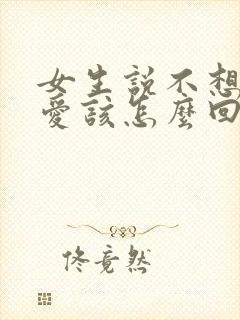 女生說不想
愛該怎麼回
佟竟然